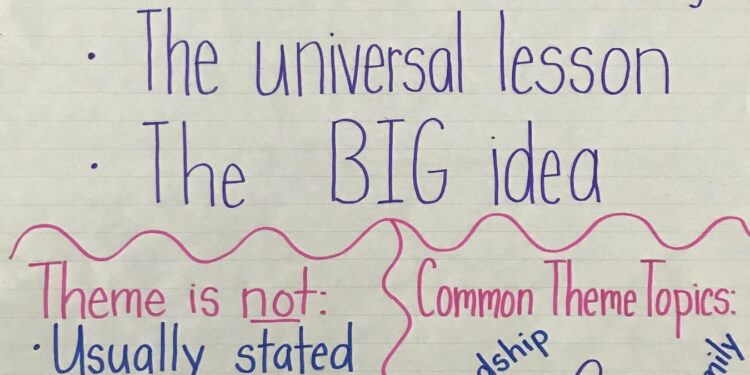 · The universal lesson
· The BIG idea
Theme is not:
· Usually stated
Common Theme Topics: